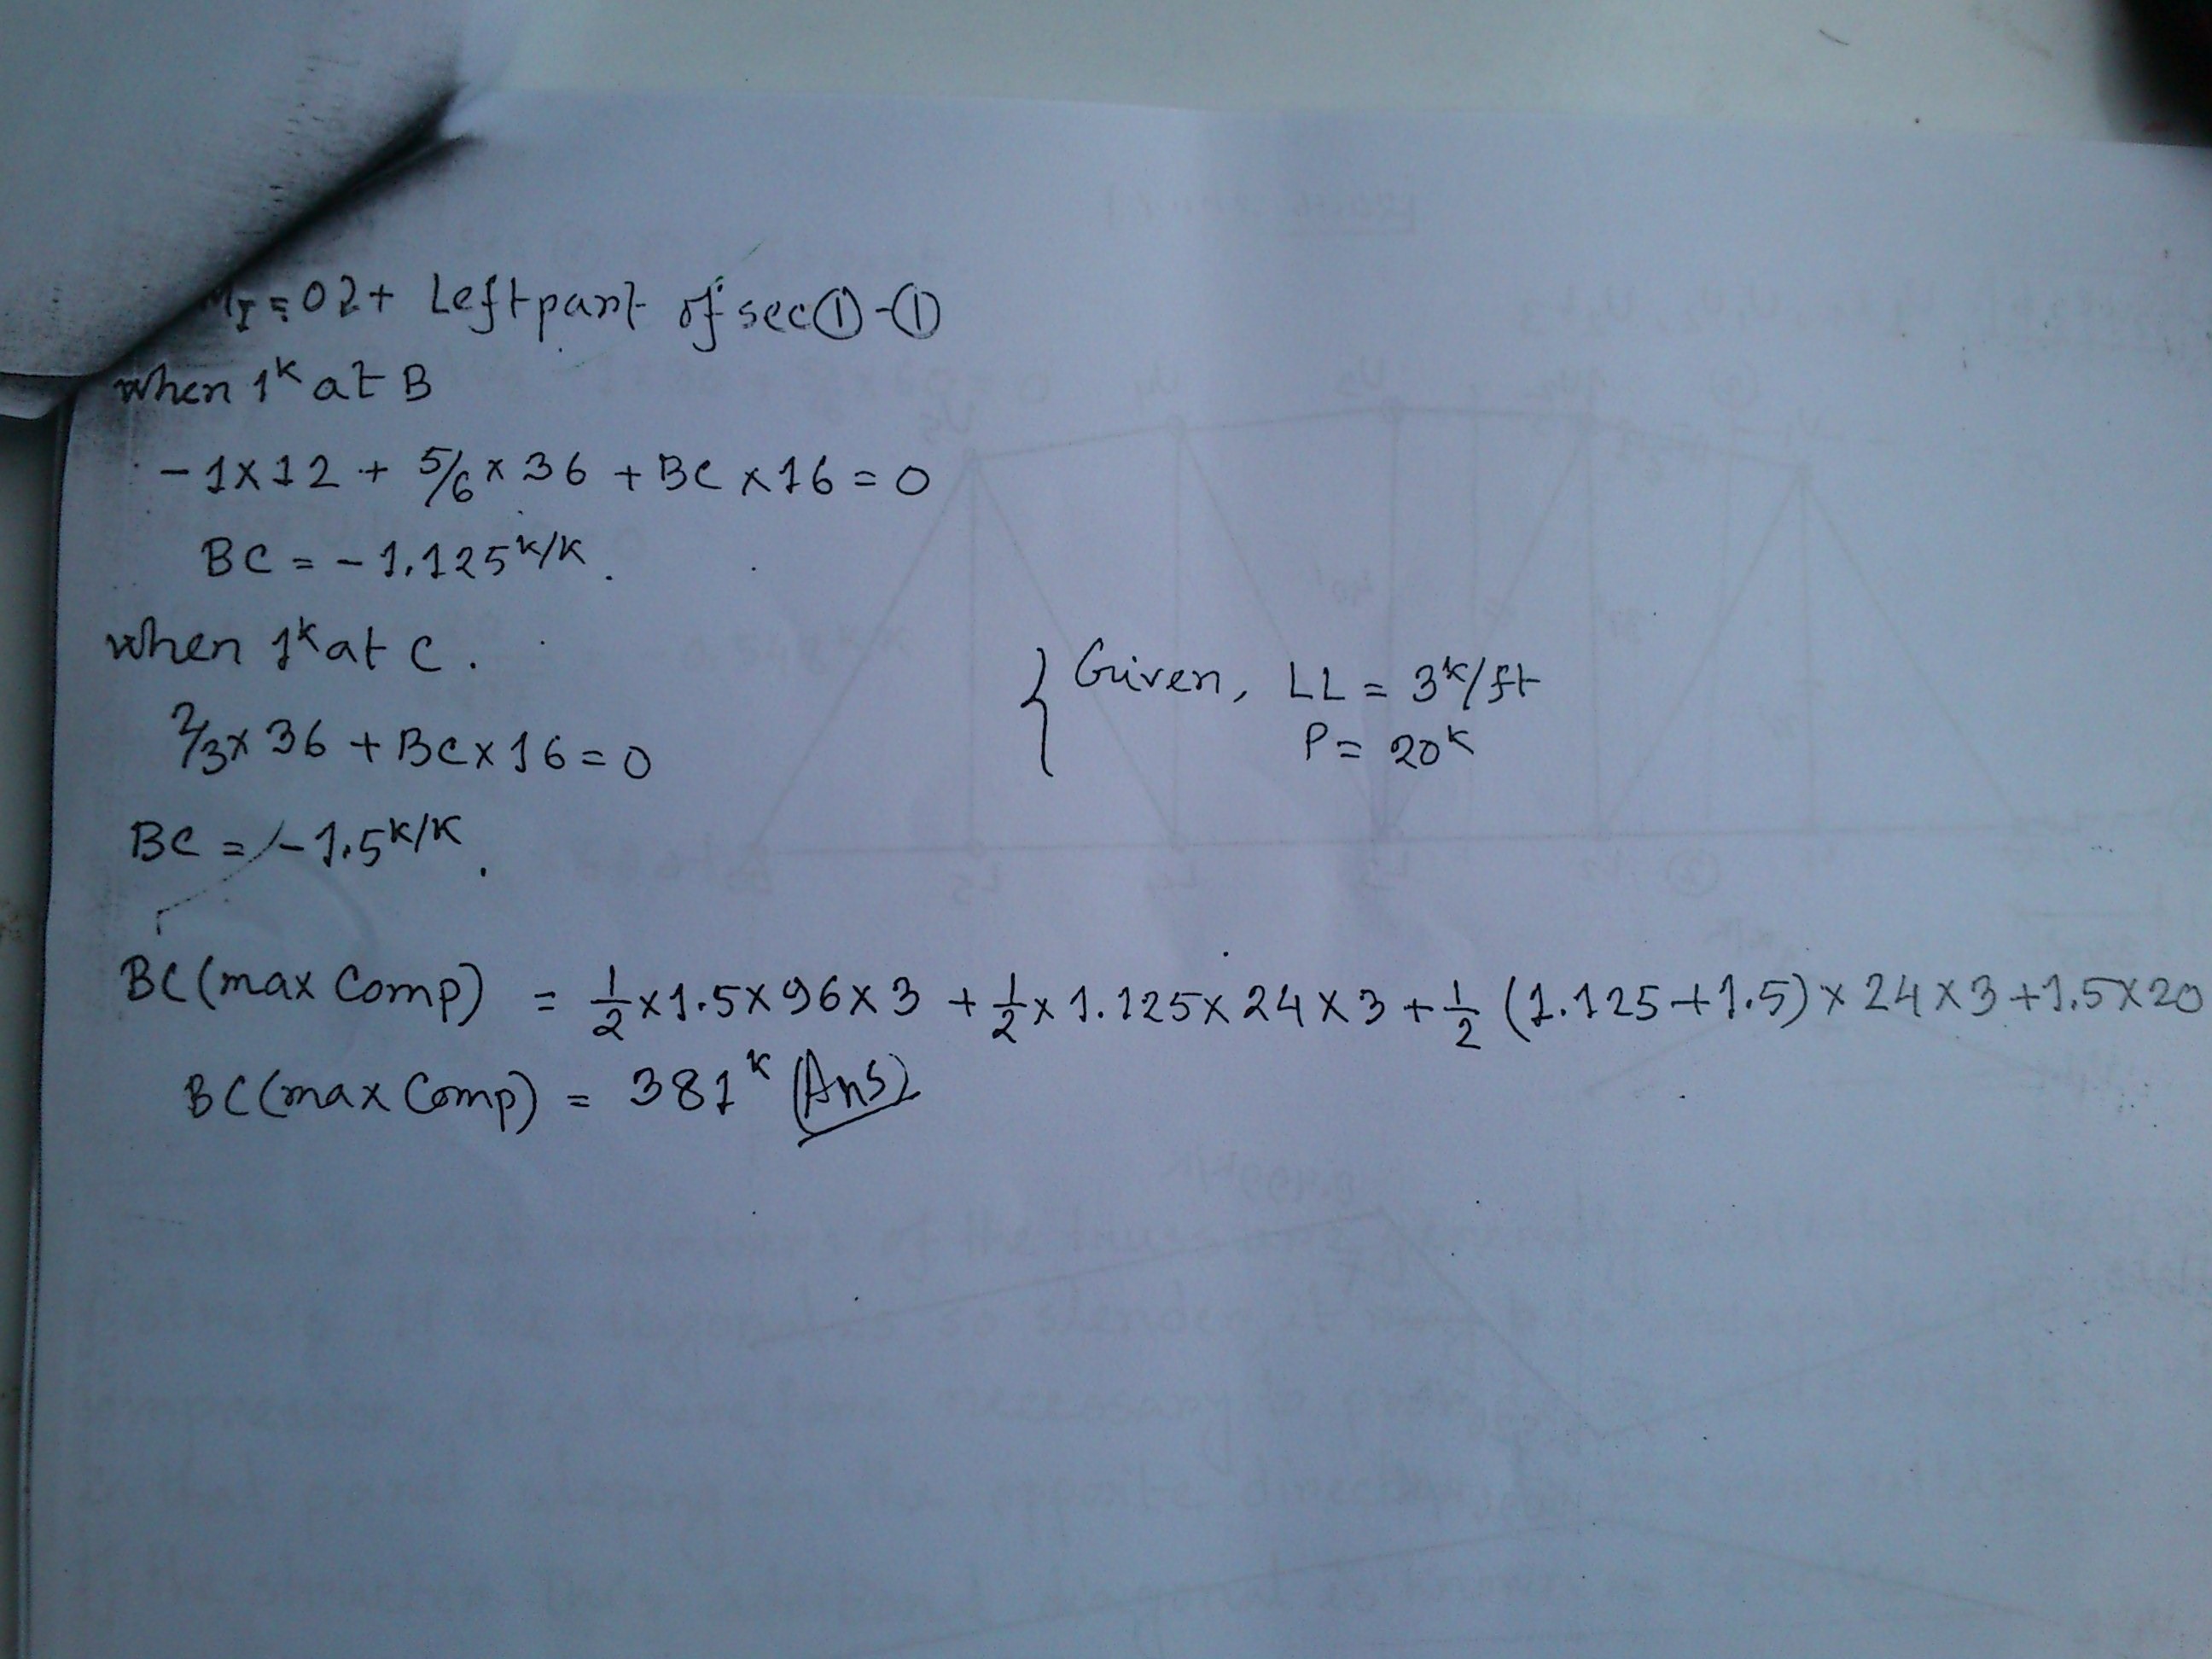 M_I = 0 2+ Left part of sec ①-①
when 1ᵏ at B
- 1 x 12 + 5/6 x 36 + BC x 16 = 0
BC = - 1.125 ᵏ/ᴋ.
when 1ᵏ at C.
2/3 x 36 + BC x 16 = 0
BC = - 1.5 ᵏ/ᴋ.
Given, LL = 3ᵏ/ft
P = 20ᵏ
BC (max Comp) = 1/2 x 1.5 x 96 x 3 + 1/2 x 1.125 x 24 x 3 + 1/2 (1.125 + 1.5) x 24 x 3 + 1.5 x 20
BC (max Comp) = 381ᵏ (Ans)